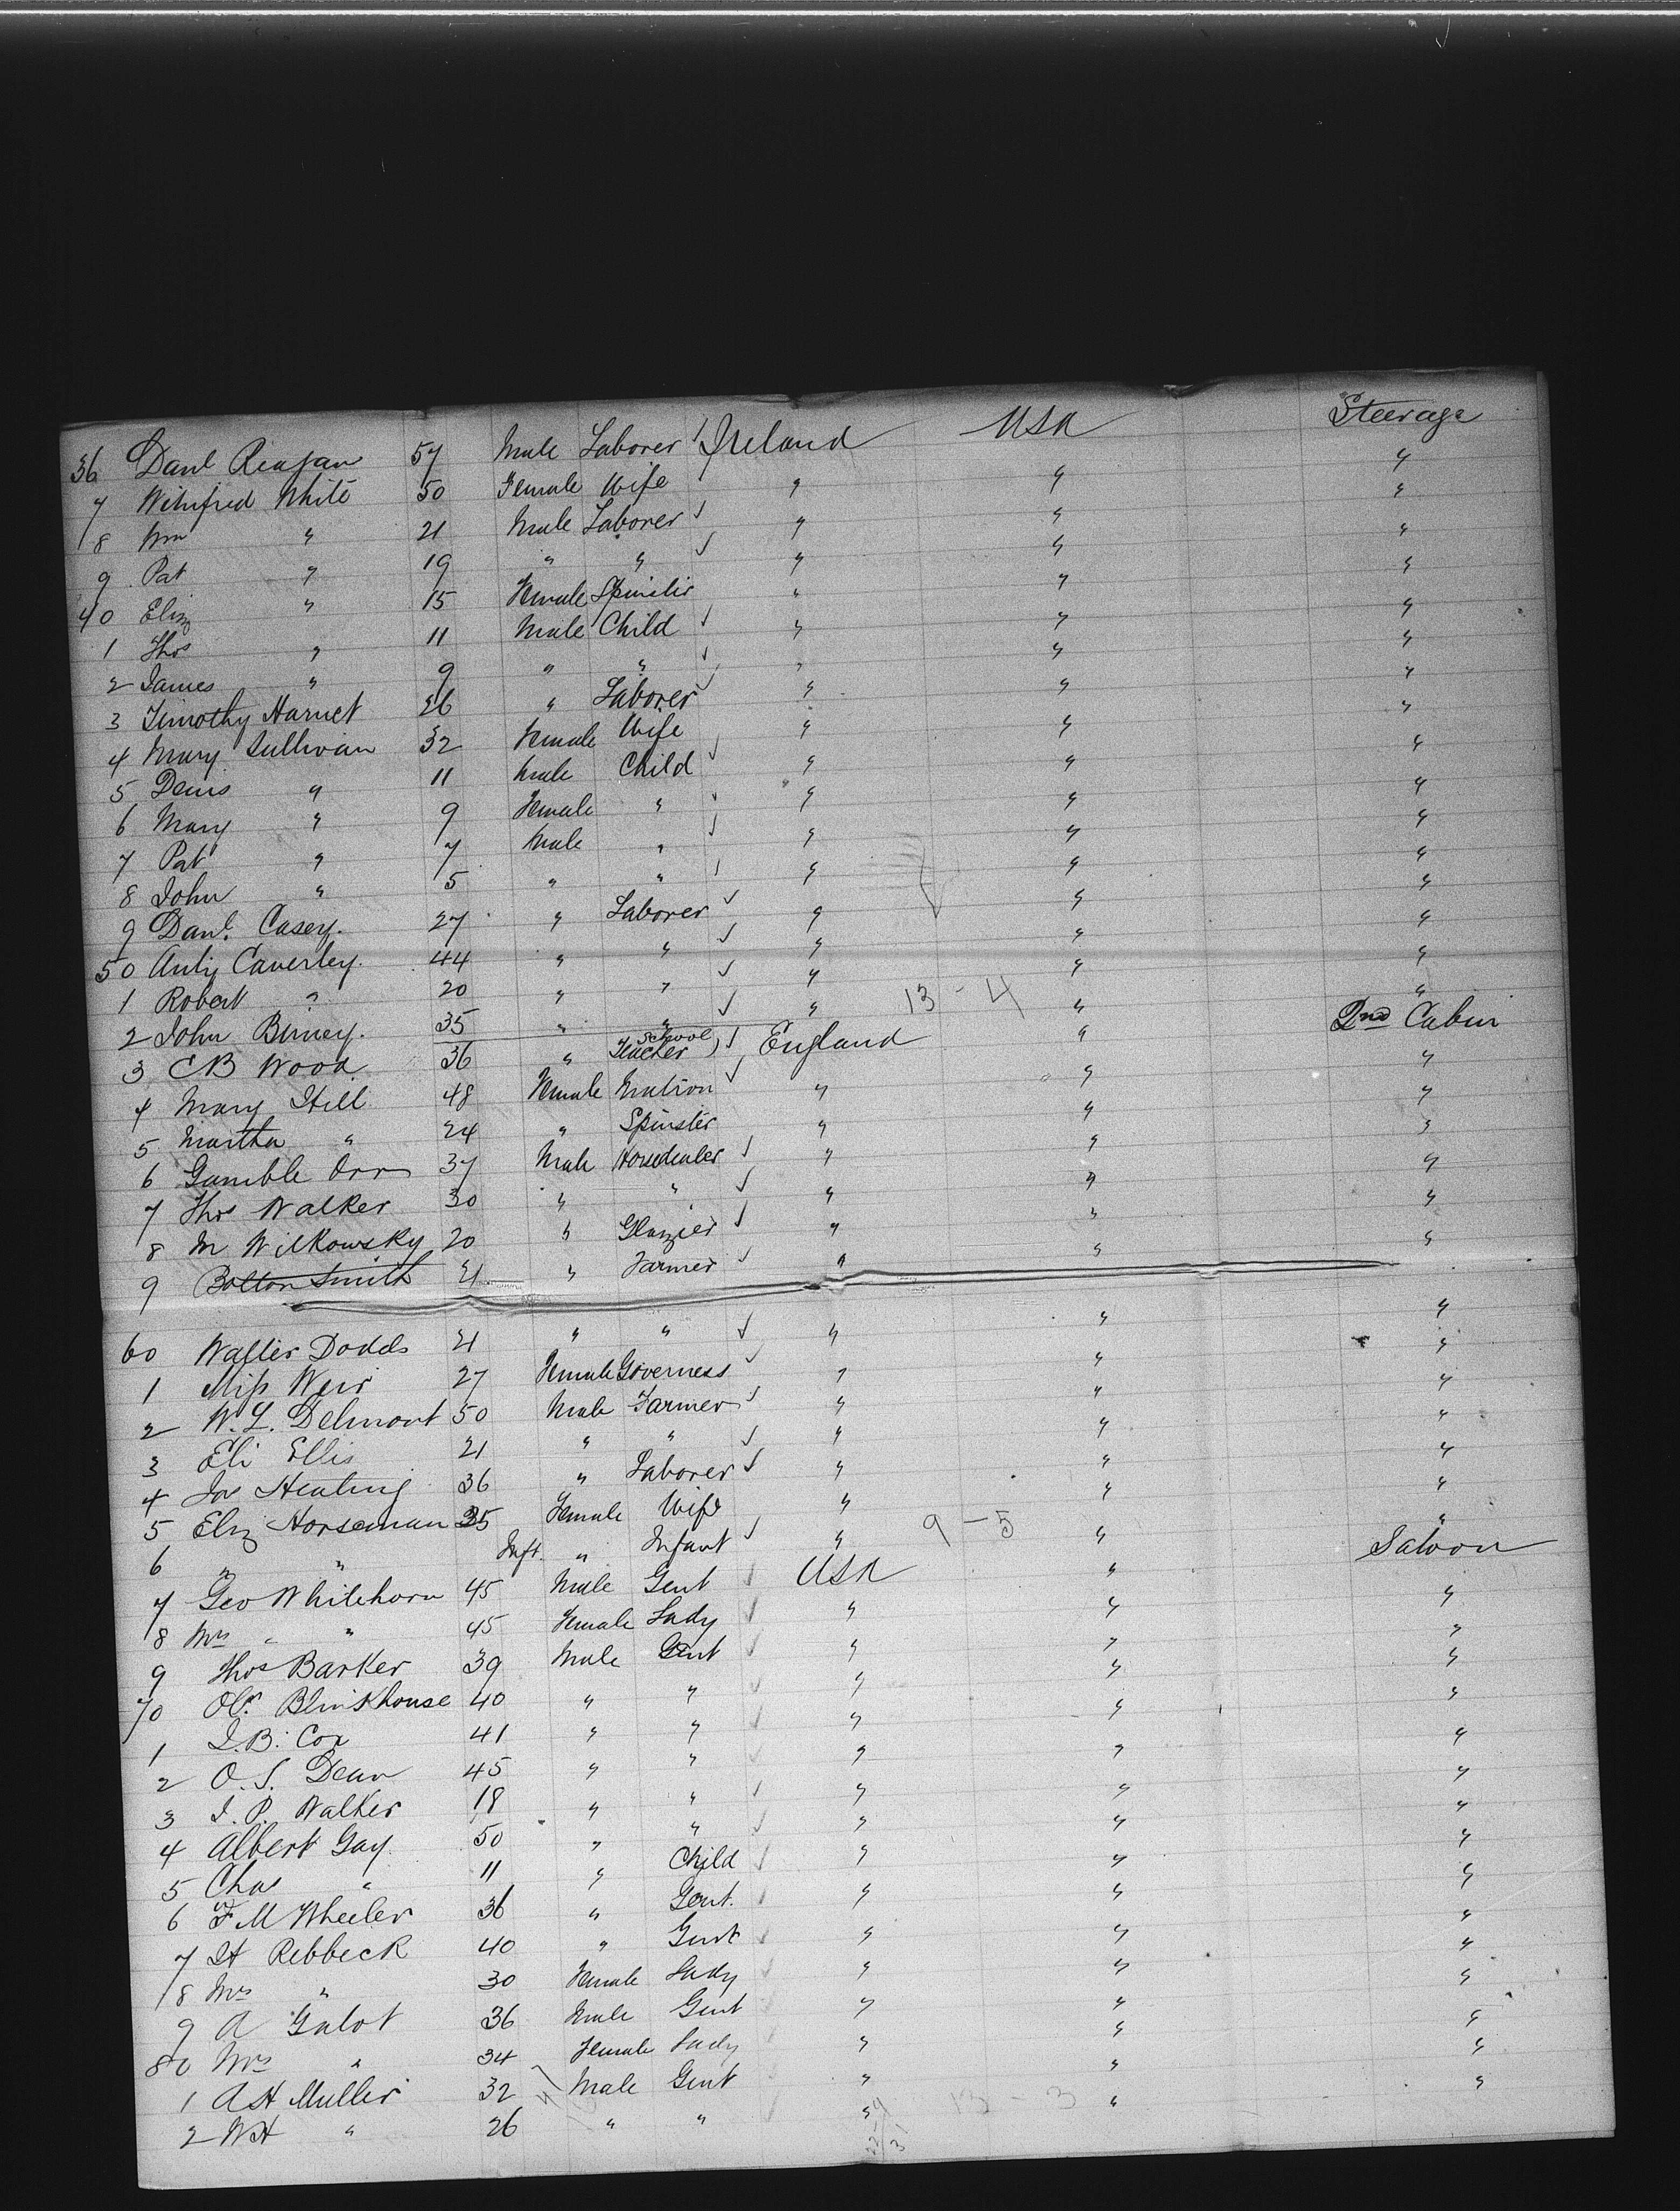 36 Danl Reagan 57 Male Laborer Ireland USA Steerage
7 Winifred White 50 Female Wife " " "
8 Wm " 21 Male Laborer " " "
9 Pat " 19 " " " " "
40 Eliz " 15 Female Spinster " " "
1 Thos " 11 Male Child " " "
2 James " 9 " " " " "
3 Timothy Harnet 26 " Laborer " " "
4 Mary Sullivan 32 Female Wife " " "
5 Denis " 11 Male Child " " "
6 Mary " 9 Female " " " "
7 Pat " 7 Male " " " "
8 John " 5 " " " " "
9 Danl. Casey. 27 " Laborer " " "
50 Anty Caverley. 44 " " " " "
1 Robert " 20 " " " " "
2 John Birney. 35 " " " 13 - 4 " "
3 CB Wood 36 " School Teacher England " 2nd Cabin
4 Mary Hill 48 Female Matron " " "
5 Martha " 24 " Spinster " " "
6 Gamble Orr 37 Male Horsedealer " " "
7 Thos Walker 30 " " " " "
8 M Wilkowsky 20 " Glazier " " "
9 Bolton Smith 21 " Farmer " " "
60 Walter Dodds 21 " " " " "
1 Miss Weir 27 Female Governess " " "
2 W. L. Delmont 50 Male Farmer " " "
3 Eli Ellis 21 " " " " "
4 Jos Heating 36 " Laborer " " "
5 Eliz Horseman 35 Female Wife " " "
6 " " Inft. " Infant " 9 - 5 " "
7 Geo Whitehorn 45 Male Gent USA " Saloon
8 Mrs " " 45 Female Lady " " "
9 Thos Barker 39 Male Gent " " "
70 Blinkhouse 40 " " " " "
1 J. B. Cox 41 " " " " "
2 O. S. Dean 45 " " " " "
3 J. P. Walker 18 " " " " "
4 Albert Gay 50 " " " " "
5 Chas " 11 " Child " " "
6 F M Wheeler 36 " Gent. " " "
7 H Rebbeck 40 " Gent " " "
8 Mrs " 30 Female Lady " " "
9 A Galot 36 Male Gent " " "
80 Mrs " 34 Female Lady " " "
1 A H Muller 32 Male Gent " " "
2 W H " 26 " " " 13 - 3 "